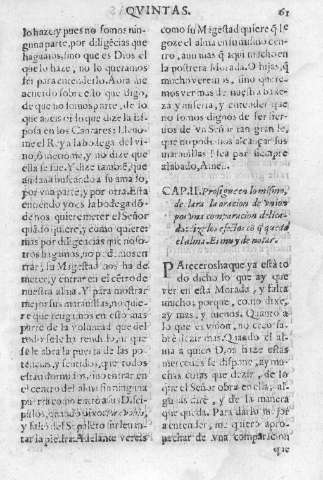 QVINTAS. 61
lo haze, y pues no somos nin-
guna parte, por diligẽcias que
hagamos, sino que es Dios el
que lo haze, no lo queramos
ser para entenderlo. Aora me
acuerdo sobre esto que digo,
de que no somos parte, de lo
que aueis oi lo que dize la Es-
posa en los Cantares: Lleuo-
me el Rey a la bodega del vi-
no, ò metiome, y no dize que
ella se fue. Y dize tambiẽ, que
andaua buscando a su amado,
por vna parte, y por otra. Esta
entiendo yo es la bodega dõ-
de nos quiere meter el Señor
quãdo quiere, y como quiere:
mas por diligencias que noso-
tros hagamos, no podemos en
trar, su Magestad nos ha de
meter, y entrar en el cẽtro de
nuestra alma. Y para mostrar
mejor sus marauillas, no quie-
re que tengamos en esto mas
parte de la voluntad que del
todo se le ha rendido, ni que
se le abra la puerta de las po-
tencias, y sentidos, que todos
estan dormidos, sino entrar en
el centro del alma sin ninguna
puerta como entrò a sus Disci-
pulos, quando dixo:
y saliò del Sepulcro sin leuan
tar la piedra. Adelante vereis
como su Magestad quiere q̃ le
goze el alma en su mismo cen-
tro, aun mas q̃ aqui mucho en
la postrera Morada. O hijas, q̃
mucho veremos, sino quere-
mos ver mas de nuestra baxe-
za y miseria, y entender que
no somos dignos de ser sier-
uos de vn Señor tan grande,
que no podemos alcançar sus
marauillas! sea por siempre
alabado, Amen.
CAP. II. Prosigue en lo mismo,
declara la oracion de vnion
por vna comparacion delica-
da: dize los efectos cõ q̃ queda
el alma. Es muy de notar.
PAreceros ha que ya està to
do dicho lo que ay que
ver en esta Morada, y falta
mucho; porque, como dixe,
ay mas, y menos. Quanto a
lo que es vnion, no creo sa-
brè dezir mas. Quando el al-
ma a quien Dios haze estas
mercedes se dispone, ay mu-
chas cosas que dezir, de lo
que el Señor obra en ella; al-
gunas dirè, y de la manera
que queda. Para darlo mejor
a entender, me quiero apro-
uechar de vna comparacion
que